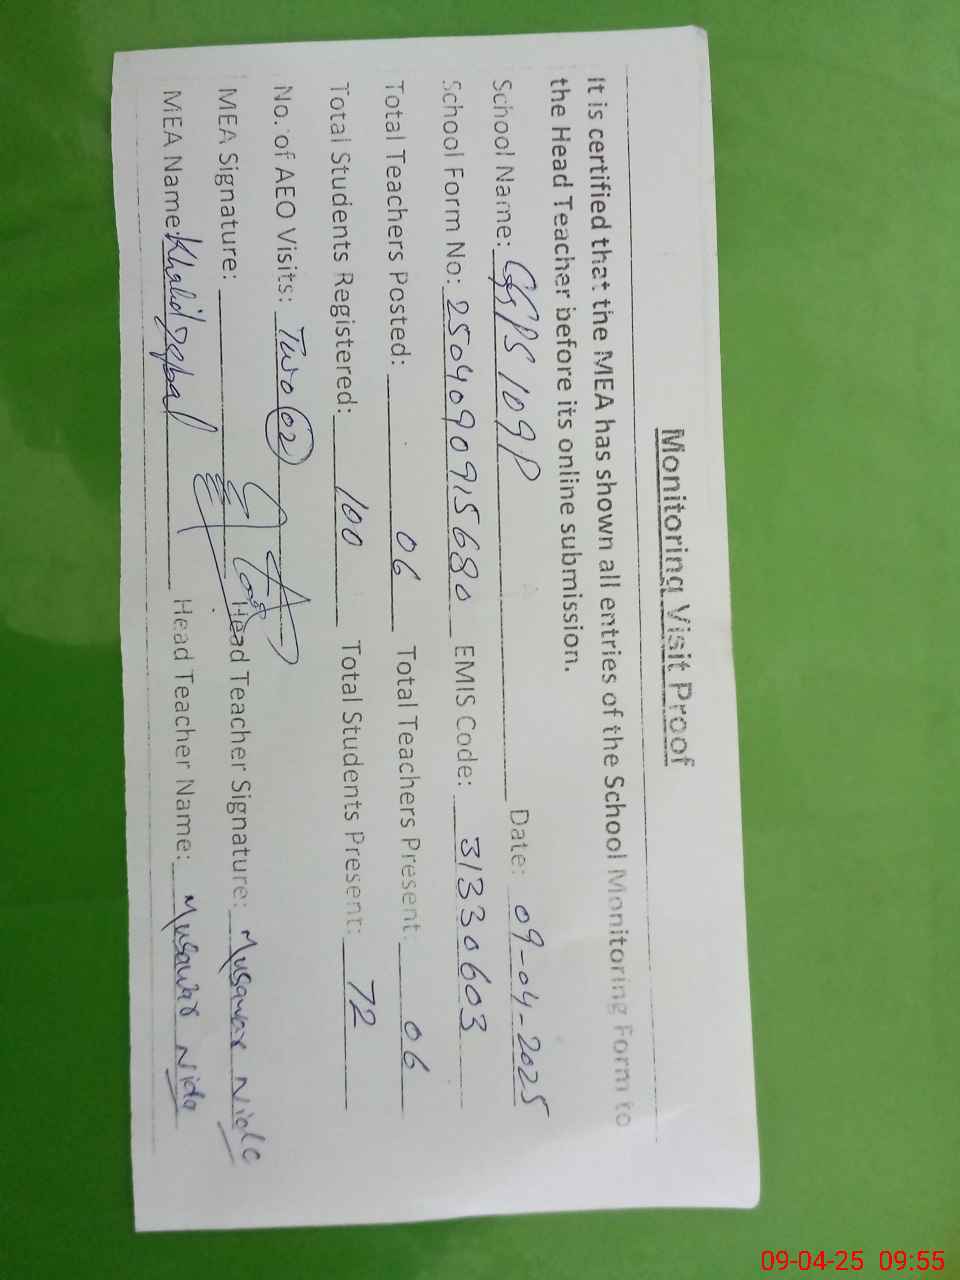 Monitoring Visit Proof
It is certified that the MEA has shown all entries of the School Monitoring Form to
the Head Teacher before its online submission.
School Name: GGPS 109P Date: 09-04-2025
School Form No: 2504090915680 EMIS Code: 31330603
Total Teachers Posted: 06 Total Teachers Present: 06
Total Students Registered: 100 Total Students Present: 72
No. of AEO Visits: Two 02
MEA Signature: Head Teacher Signature: Musawar Nida
MEA Name: Khalid Iqbal Head Teacher Name: Musawar Nida
09-04-25 09:55